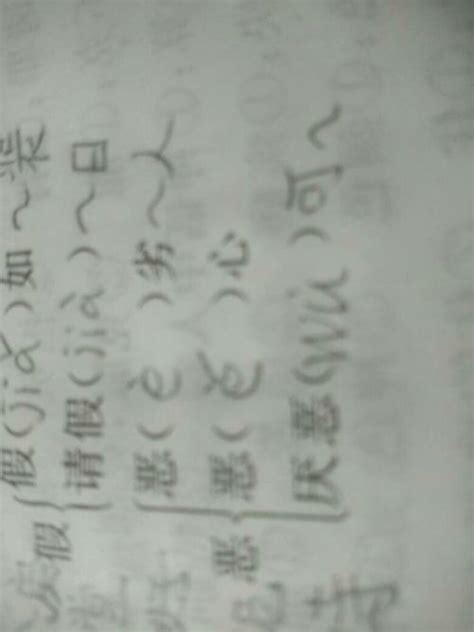 假{假(jiǎ)如~装
请假(jià)~日
恶{恶(è)劣~人
恶(ě)心
厌恶(wù)可~